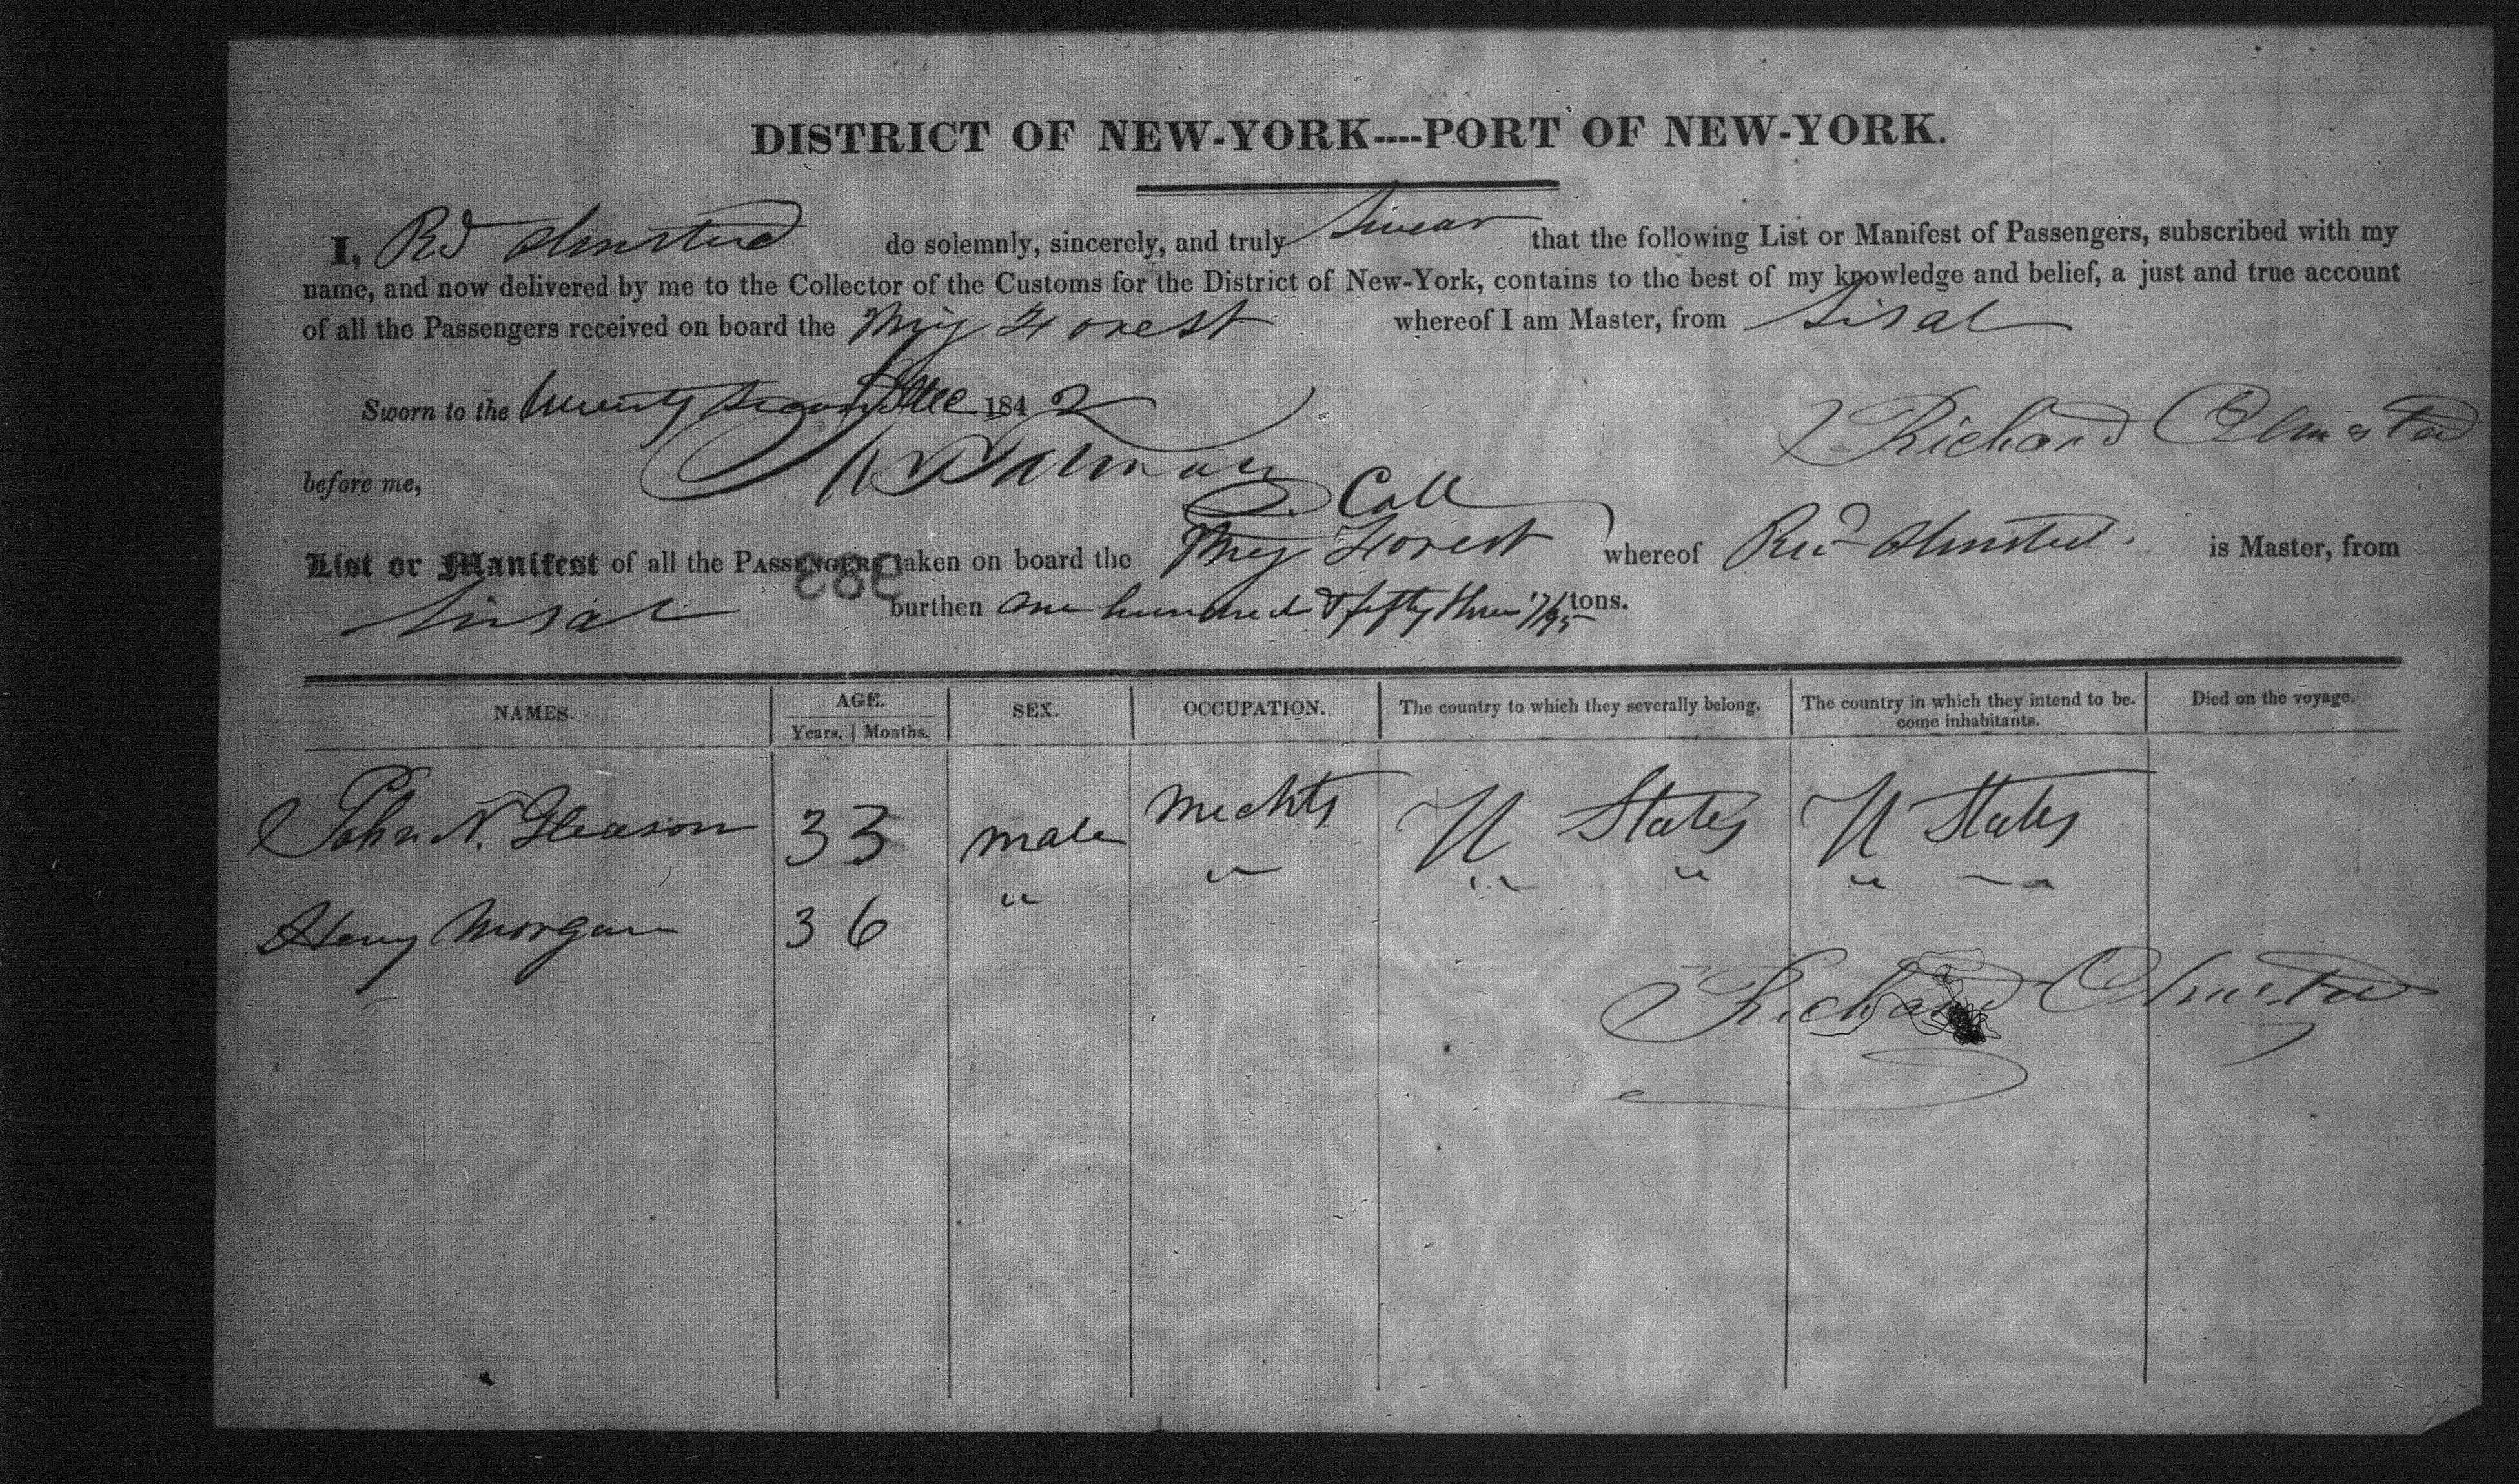 DISTRICT OF NEW-YORK----PORT OF NEW-YORK.
I, Rd Olmsted do solemnly, sincerely, and truly Swear that the following List or Manifest of Passengers, subscribed with my
name, and now delivered by me to the Collector of the Customs for the District of New-York, contains to the best of my knowledge and belief, a just and true account
of all the Passengers received on board the Forest whereof I am Master, from Sisal
Sworn to the twenty second Dec 1842
Richard Olmsted
before me,
D. Coll
List or Manifest of all the PASSENGERS taken on board the Forest whereof Ricd Olmsted. is Master, from
983
Sisal burthen One hundred & fifty three 17/95 tons.
NAMES. AGE. SEX. OCCUPATION. The country to which they severally belong. The country in which they intend to be- Died on the voyage.
Years. | Months. come inhabitants.
John N. Gleason 33 male Mechts U States U States
Henry Morgan 36 " " " " " "
Richard Olmsted